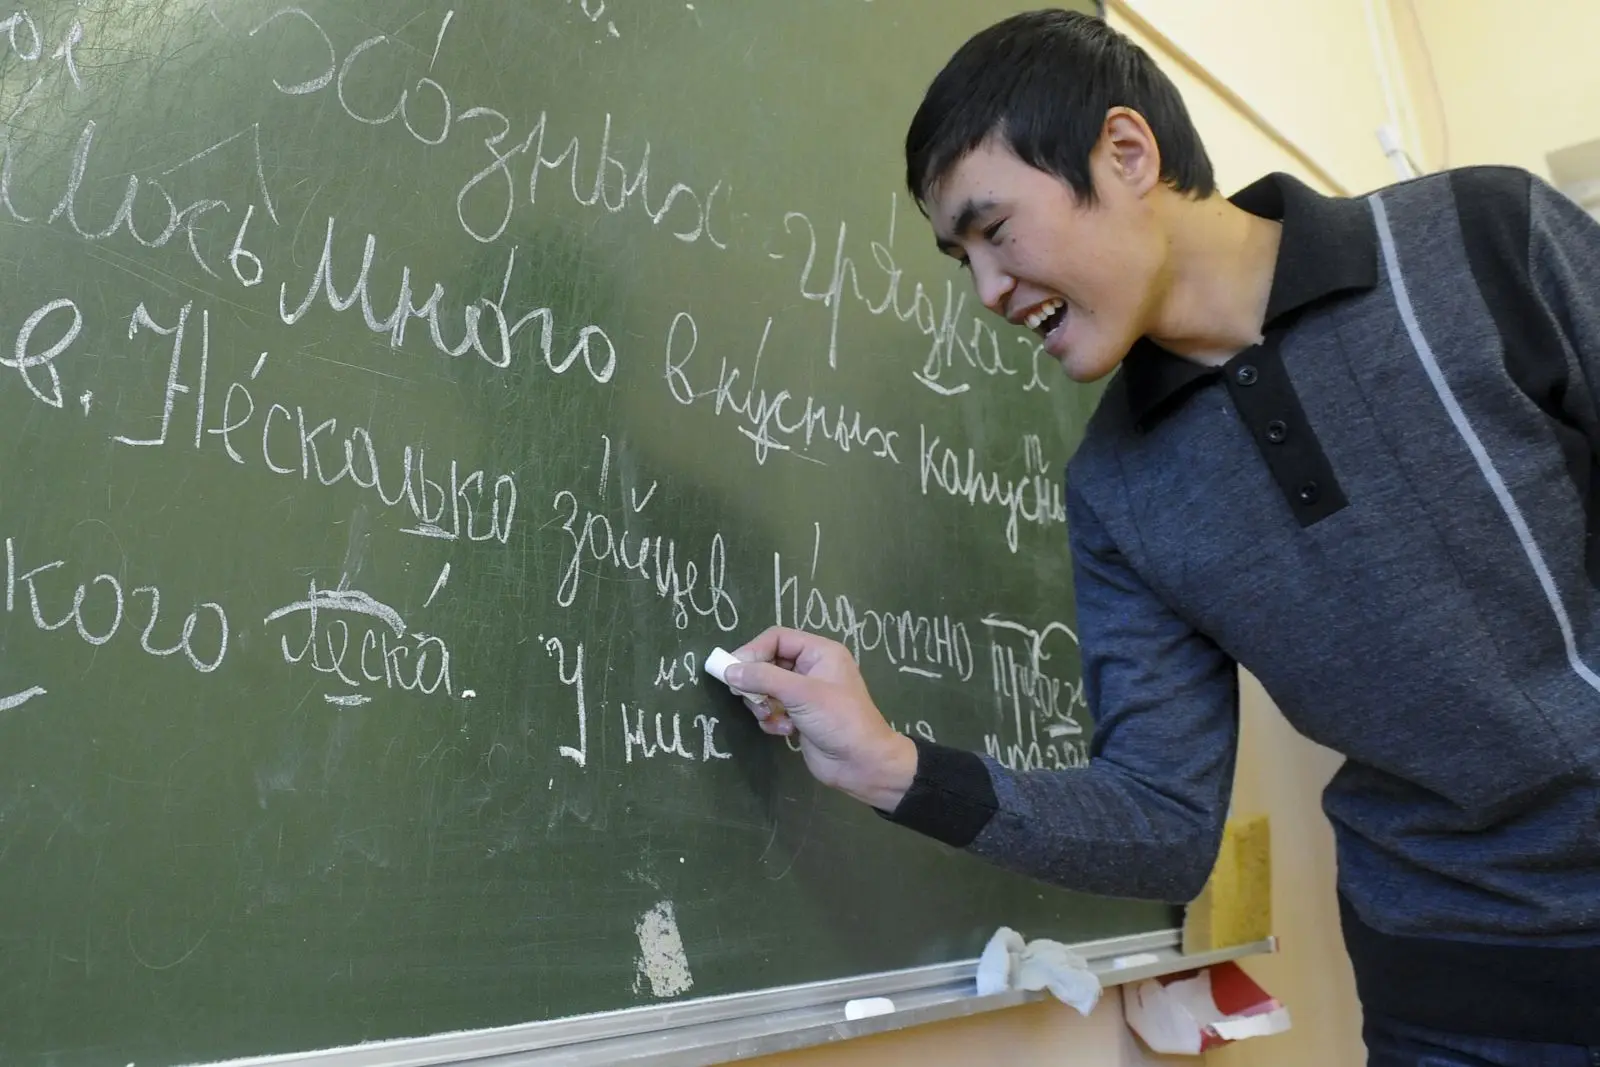 хо́зных - гря́дках
лось мно́го вку́сных капустн
в. Не́сколько за́йцев ра́достно прибеж
кого леска́. У них